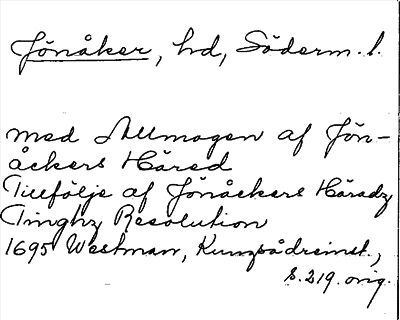 Jönåker, hd, Söderm. l.
med Allmogen af Jön-
åckers Härad
Tillfölje af Jönåckers Häradz
Tinghz Resolution
1695 Westman, Kungsådreinst.,
s. 219. orig.